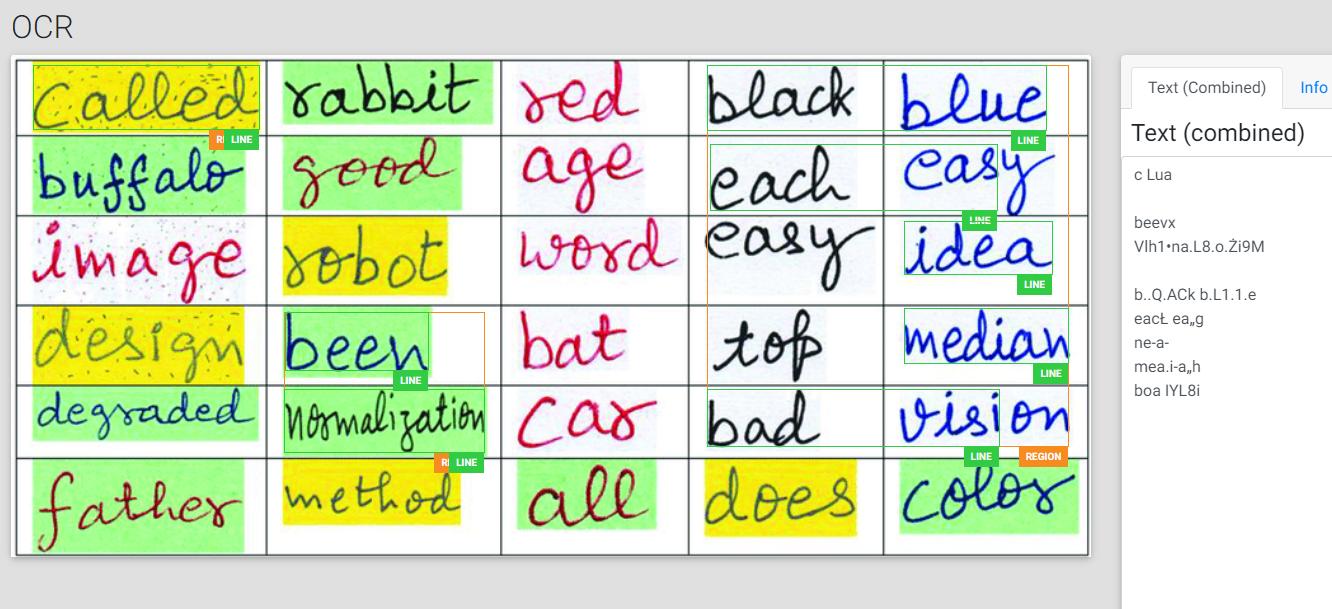 OCR
called rabbit red black blue
LINE
buffalo good age each easy
LINE
image robot word easy idea
LINE
design been bat top median
LINE LINE
degraded normalization car bad vision
LINE LINE REGION
father method all does color
Text (Combined) Info
Text (combined)
c Lua
beevx
Vlh1•na.L8.o.Żi9M
b..Q.ACk b.L1.1.e
eacŁ ea„g
ne-a-
mea.i-a„h
boa IYL8i